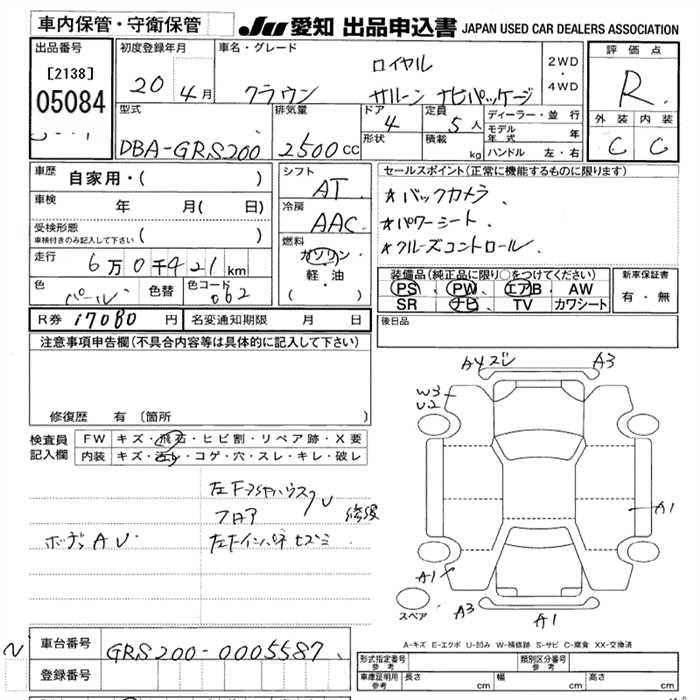 車内保管・守衛保管
JU 愛知 出品申込書 JAPAN USED CAR DEALERS ASSOCIATION
出品番号 初度登録年月 車名・グレード 評価点
[2138]
05084
20年 4月 クラウン ロイヤル サルーン ナビパッケージ 2WD・4WD R
外装 内装
C C
型式 排気量 ドア 定員 ディーラー・並行
DBA-GRS200 2500cc 4 5人 モデル年式 年
形状 積載 kg ハンドル 左・右
車歴 自家用・( )
シフト AT
セールスポイント(正常に機能するものに限ります)
☆バックカメラ、
☆パワーシート、
☆クルーズコントロール、
車検 年 月( 日)
冷房 AAC
受検形態
車検付きのみ記入して下さい ( )
燃料 ガソリン・軽油・( )
走行 6万0千421km
色 パール 色替 色コード 062
装備品(純正品に限り○をつけてください) 新車保証書
PS PW エアB AW 有・無
SR ナビ TV カワシート
R券 17080円 名変通知期限 月 日
後日品
注意事項申告欄(不具合内容等は具体的に記入して下さい)
修復歴 有 〔箇所 〕
検査員記入欄
FW キズ・飛石・ヒビ割・リペア跡・X要
内装 キズ・汚れ・コゲ・穴・スレ・キレ・破レ
左Fタイヤハウス
フロア U 修復
ボデー A U 左Fインパネ キズミ
A4ズレ A3
W3
U2
A1
A1
A3 A1
スペア
A-キズ E-エクボ U-凹み W-補修跡 S-サビ C-腐食 XX-交換済
車台番号 GRS200-0005587
登録番号
型式指定番号 参考 類別区分番号 参考
車庫証明用 参考 長さ cm 幅 cm 高さ cm